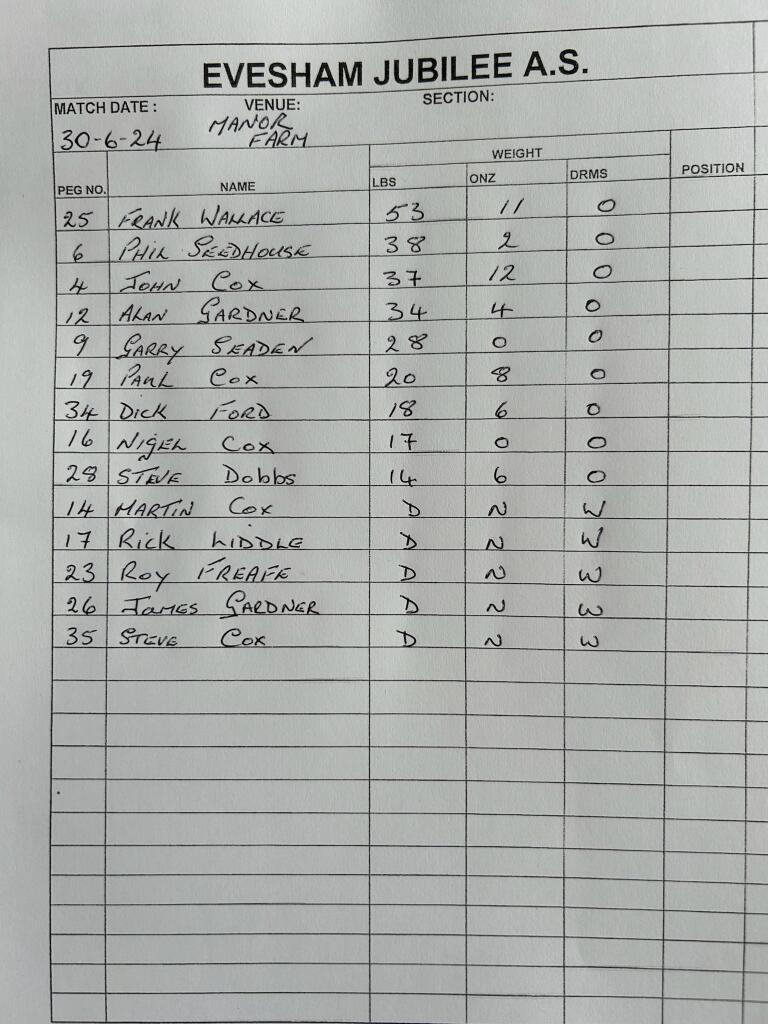 EVESHAM JUBILEE A.S.
MATCH DATE : VENUE: SECTION:
30-6-24 MANOR FARM
WEIGHT
PEG NO. NAME LBS ONZ DRMS POSITION
25 FRANK WALLACE 53 11 0
6 PHIL SEEDHOUSE 38 2 0
4 JOHN COX 37 12 0
12 ALAN GARDNER 34 4 0
9 GARRY SEADEN 28 0 0
19 PAUL COX 20 8 0
34 DICK FORD 18 6 0
16 NIGEL COX 17 0 0
28 STEVE Dobbs 14 6 0
14 MARTIN COX D N W
17 RICK LIDDLE D N W
23 ROY FREAFE D N W
26 JAMES GARDNER D N W
35 STEVE COX D N W